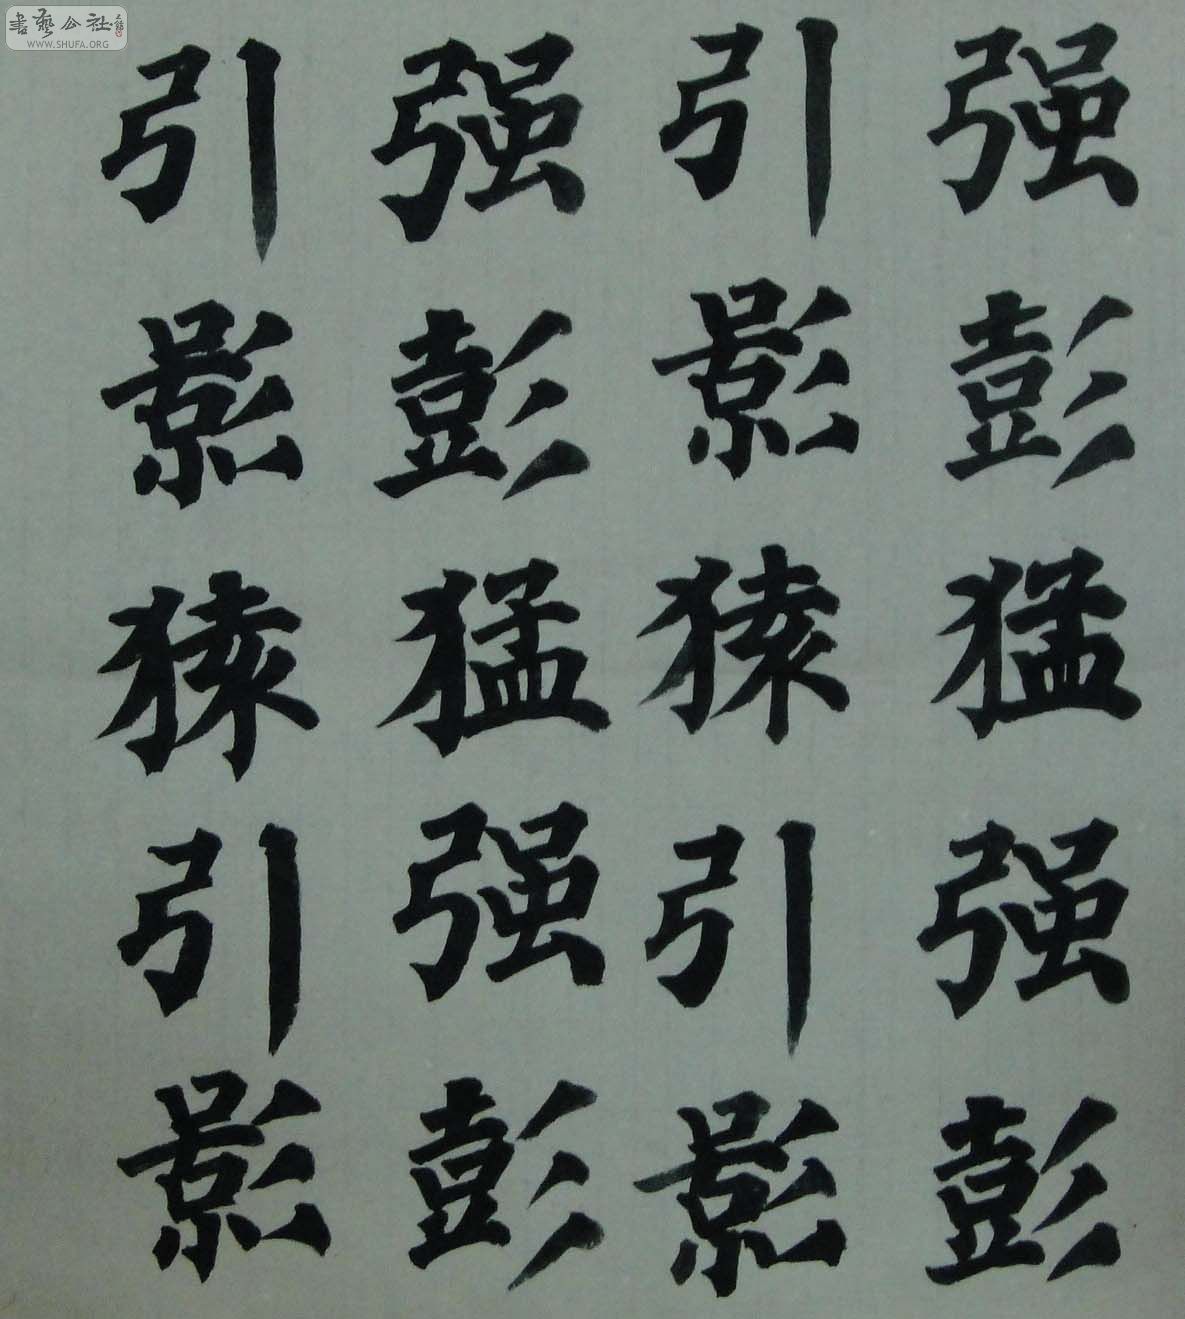 書藝公社
WWW.SHUFA.ORG
强彭猛强彭
引影猿引影
强彭猛强彭
引影猿引影